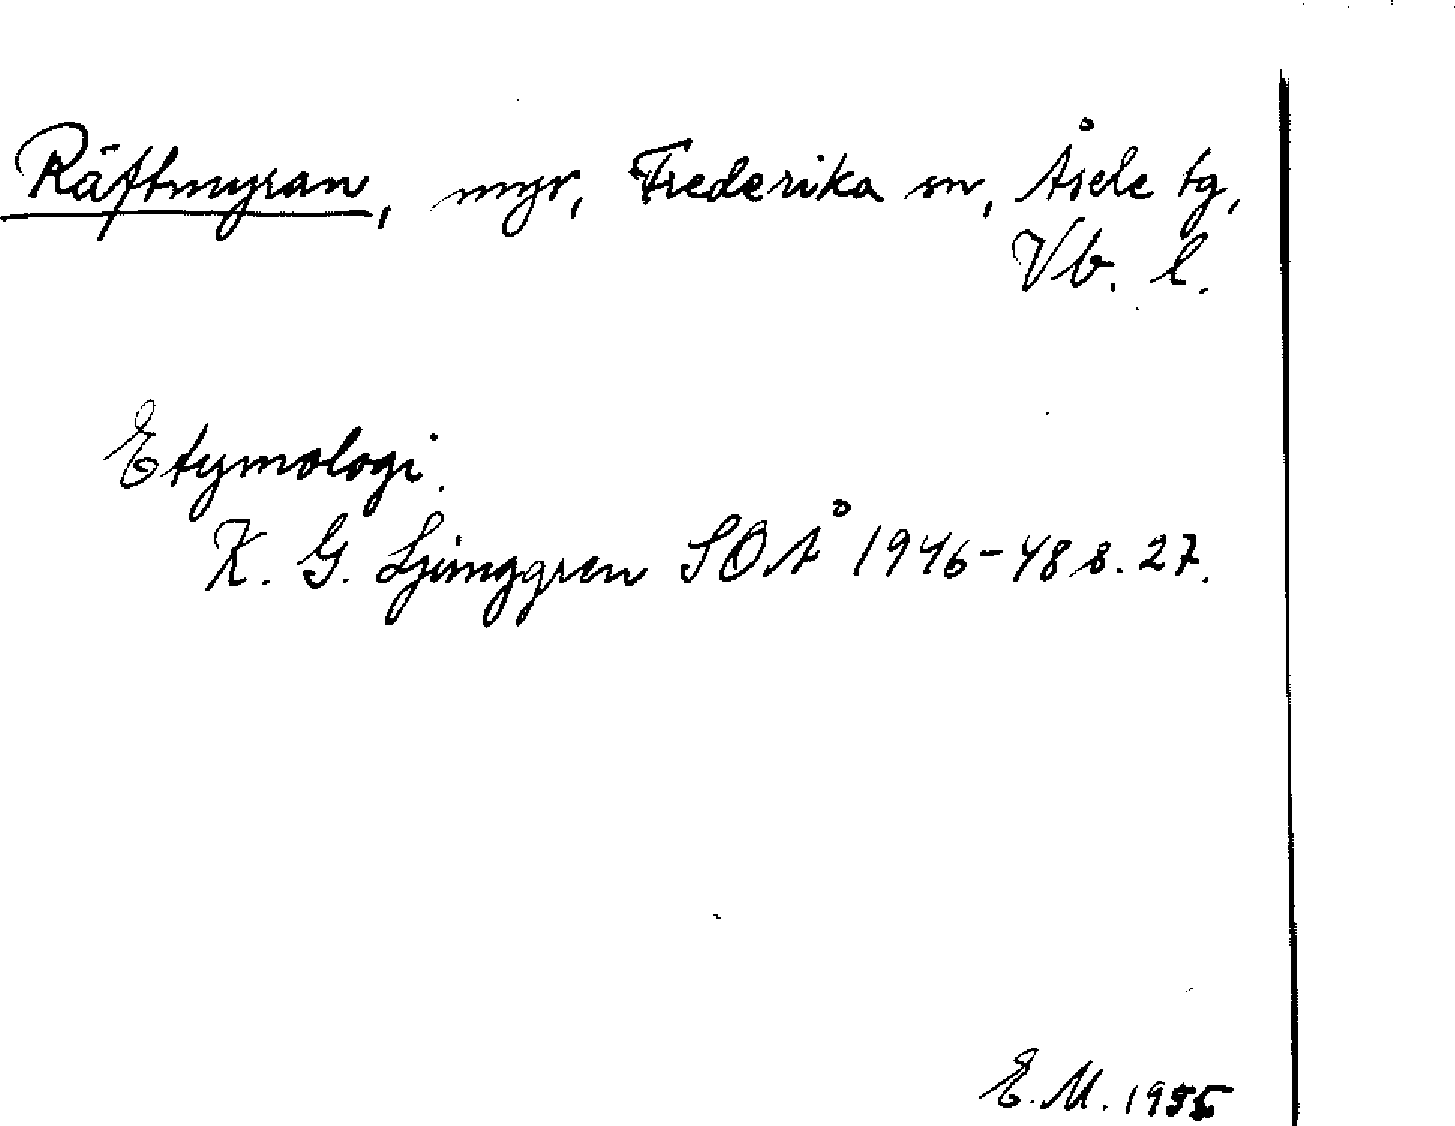 Räftmyran, myr, Frederika sn, Åsele tg,
Vb. l.
Etymologi.
K. G. Ljunggren SOÅ 1946-48 s. 27.
E. M. 1955